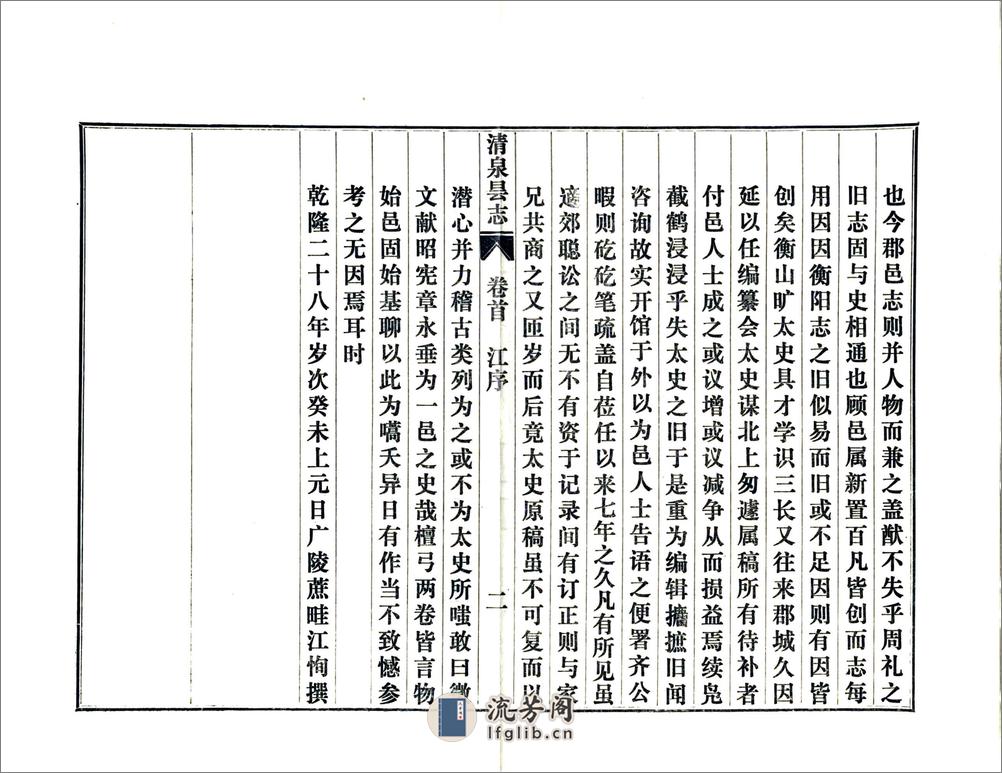 也今郡邑志则并人物而兼之盖猷不失乎周礼之
旧志固与史相通也顾邑属新置百凡皆创而志每
用因因衡阳志之旧似易而旧或不足因则有因皆
创矣衡山旷太史具才学识三长又往来郡城久因
延以任编纂会太史谋北上匆遽属稿所有待补者
付邑人士成之或议增或议减争从而损益焉续凫
截鹤浸浸乎失太史之旧于是重为编辑攟摭旧闻
咨询故实开馆于外以为邑人士告语之便署齐公
暇则矻矻笔疏盖自莅任以来七年之久凡有所见虽
适郊聪讼之间无不有资于记录间有订正则与家
兄共商之又匝岁而后竟太史原稿虽不可复而以
清泉县志 卷首 江序 二
潜心并力稽古类列为之或不为太史所嗤敢曰徵
文献昭宪章永垂为一邑之史哉檀弓两卷皆言物
始邑固始基聊以此为嚆矢异日有作当不致憾参
考之无因焉耳时
乾隆二十八年岁次癸未上元日广陵蔗畦江恂撰
流芳阁
lfglib.cn